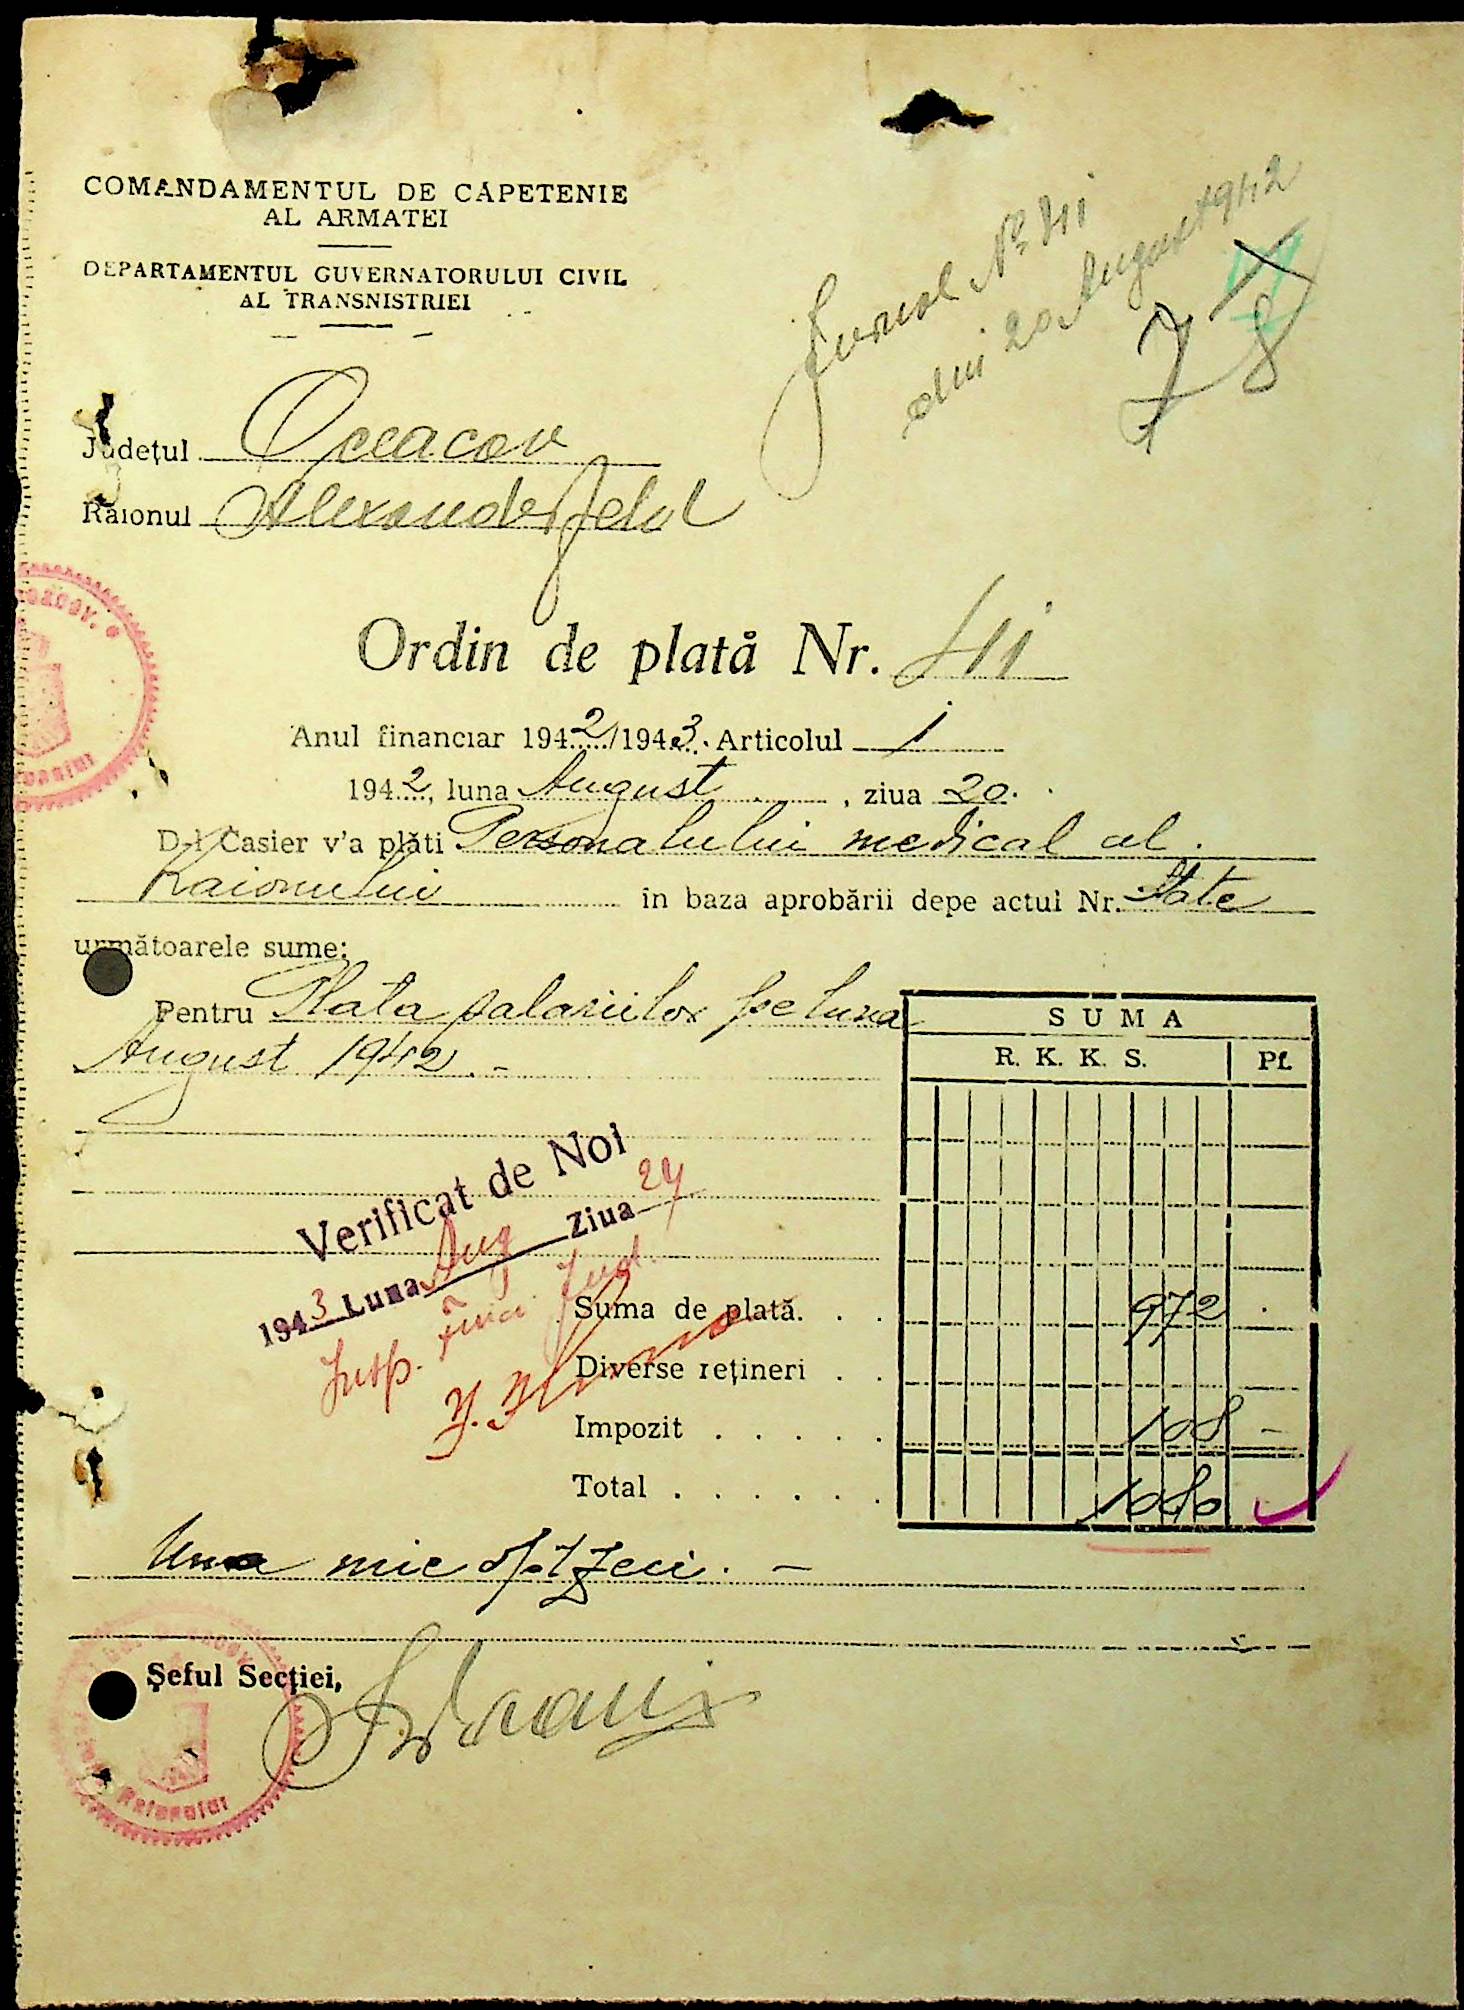 COMANDAMENTUL DE CAPETENIE
AL ARMATEI
DEPARTAMENTUL GUVERNATORULUI CIVIL
AL TRANSNISTRIEI
Jurnal No 411
din 20 August 1942
78
Județul Oceacov
Raionul Alexanderfeld
Ordin de plată Nr. 411
Anul financiar 1942/1943. Articolul 1
1942, luna August, ziua 20.
D-l Casier v'a plăti Personalului medical al
Raionului în baza aprobării depe actul Nr. State
următoarele sume:
Pentru Plata salariilor pe luna
August 1942.-
SUMA
R. K. K. S. Pf.
Verificat de Noi
1943 Luna Aug Ziua 24
Insp. Finc. Jud.
Suma de plată. . . 972 .
Diverse rețineri . .
Impozit . . . . . 108 -
Total . . . . . . 1080
Una mie optzeci. -
Șeful Secției,
Raionului